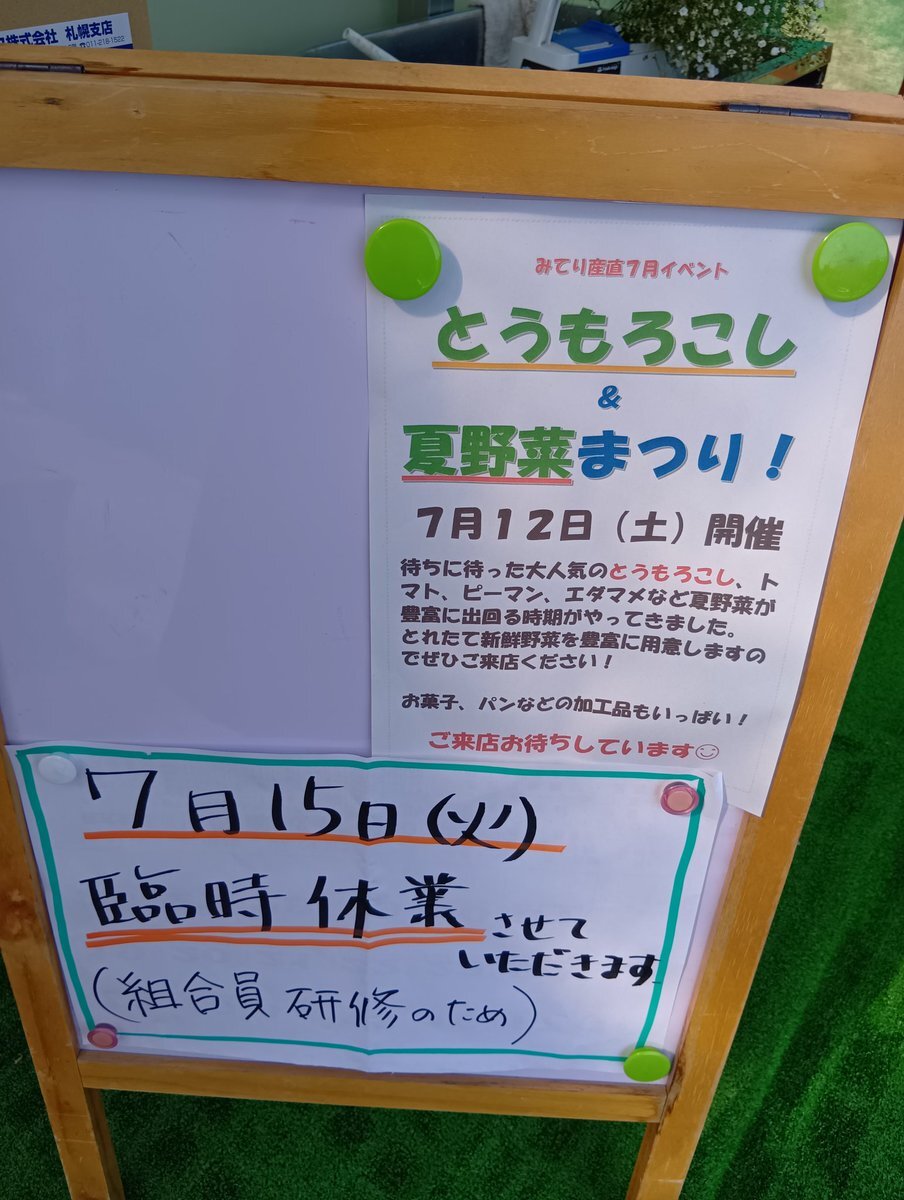 株式会社 札幌支店
011-218-1522
みてり産直7月イベント
とうもろこし
&
夏野菜まつり！
7月12日（土）開催
待ちに待った大人気のとうもろこし、ト
マト、ピーマン、エダマメなど夏野菜が
豊富に出回る時期がやってきました。
とれたて新鮮野菜を豊富に用意しますの
でぜひご来店ください！
お菓子、パンなどの加工品もいっぱい！
ご来店お待ちしています☺
7月15日(火)
臨時休業させて
いただきます.
(組合員研修のため)